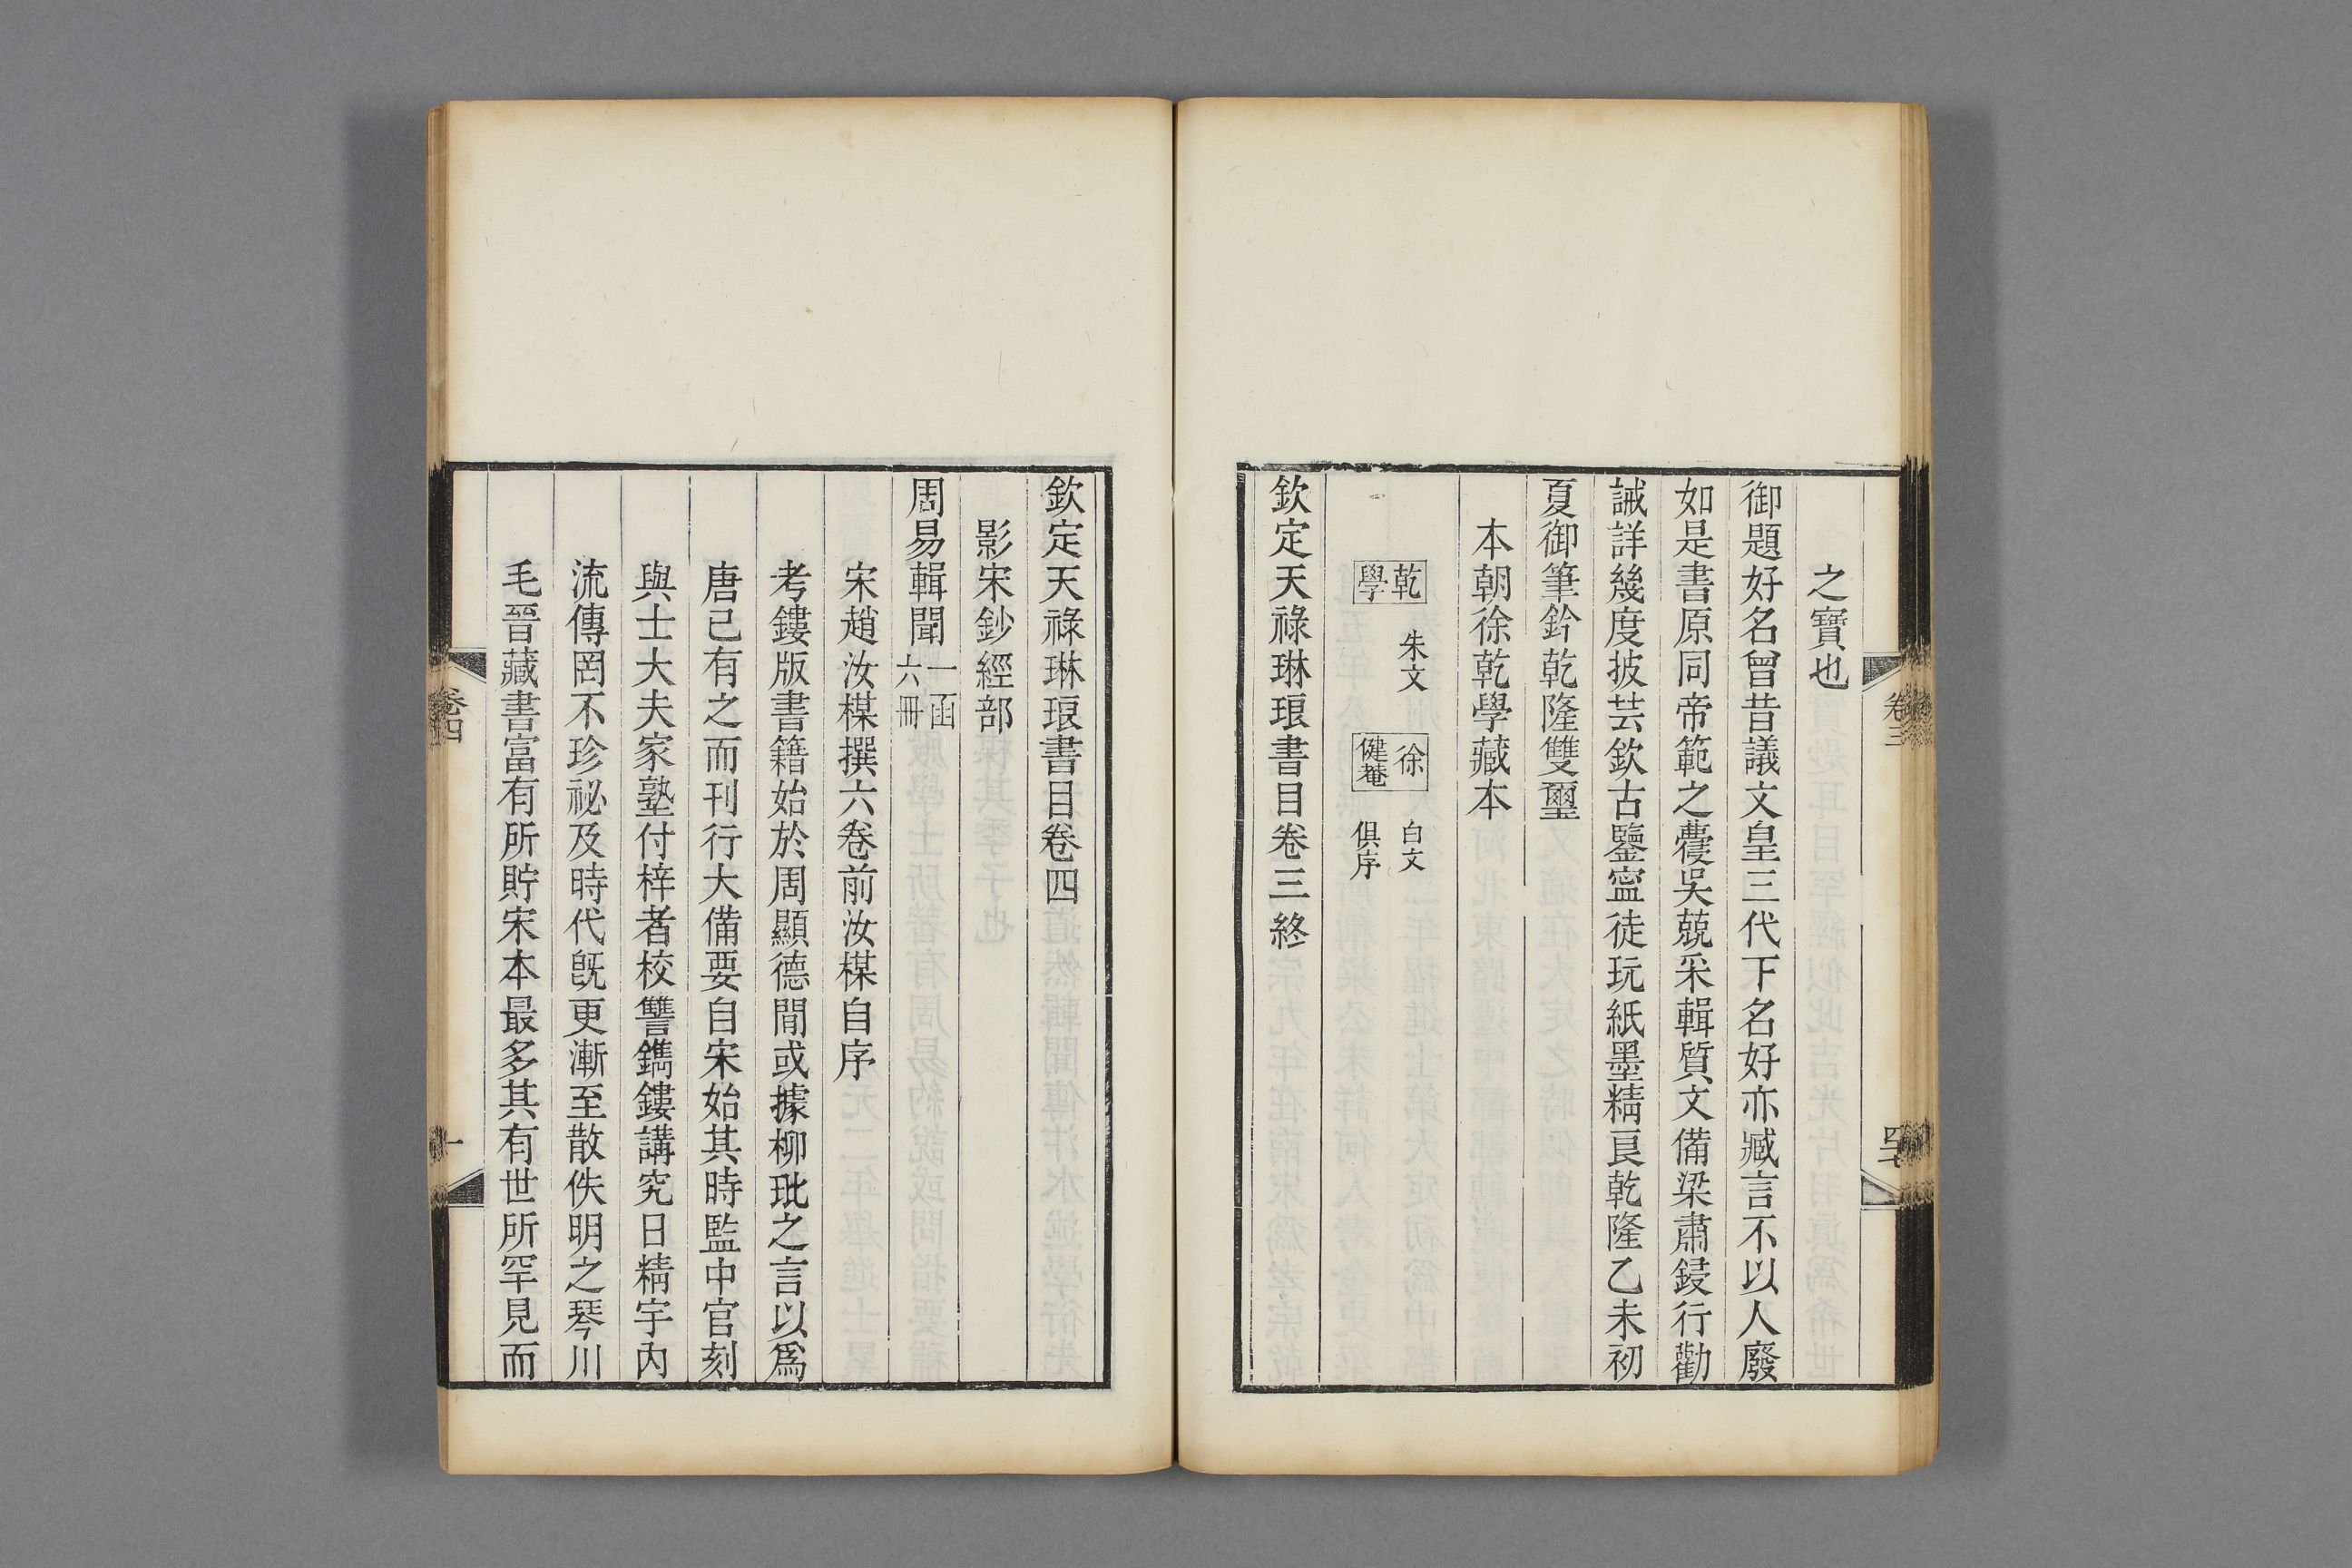 之寶也
御題好名曾昔議文皇三代下名好亦臧言不以人廢
如是書原同帝範之虁吳兢采輯質文備梁肅鋟行勸
誡詳幾度披芸欽古鑒寍徒玩紙墨精良乾隆乙未初
夏御筆鈐乾隆雙璽
本朝徐乾學藏本
乾學 朱文 徐健菴 白文 俱序
欽定天祿琳琅書目卷三終
卷三
四七
欽定天祿琳琅書目卷四
影宋鈔經部
周易輯聞 一函六冊
宋趙汝楳撰六卷前汝楳自序
考鏤版書籍始於周顯德間或據柳玭之言以爲
唐已有之而刊行大備要自宋始其時監中官刻
與士大夫家塾付梓者校讐鐫鏤講究日精宇內
流傳罔不珍祕及時代旣更漸至散佚明之琴川
毛晉藏書富有所貯宋本最多其有世所罕見而
卷四
一